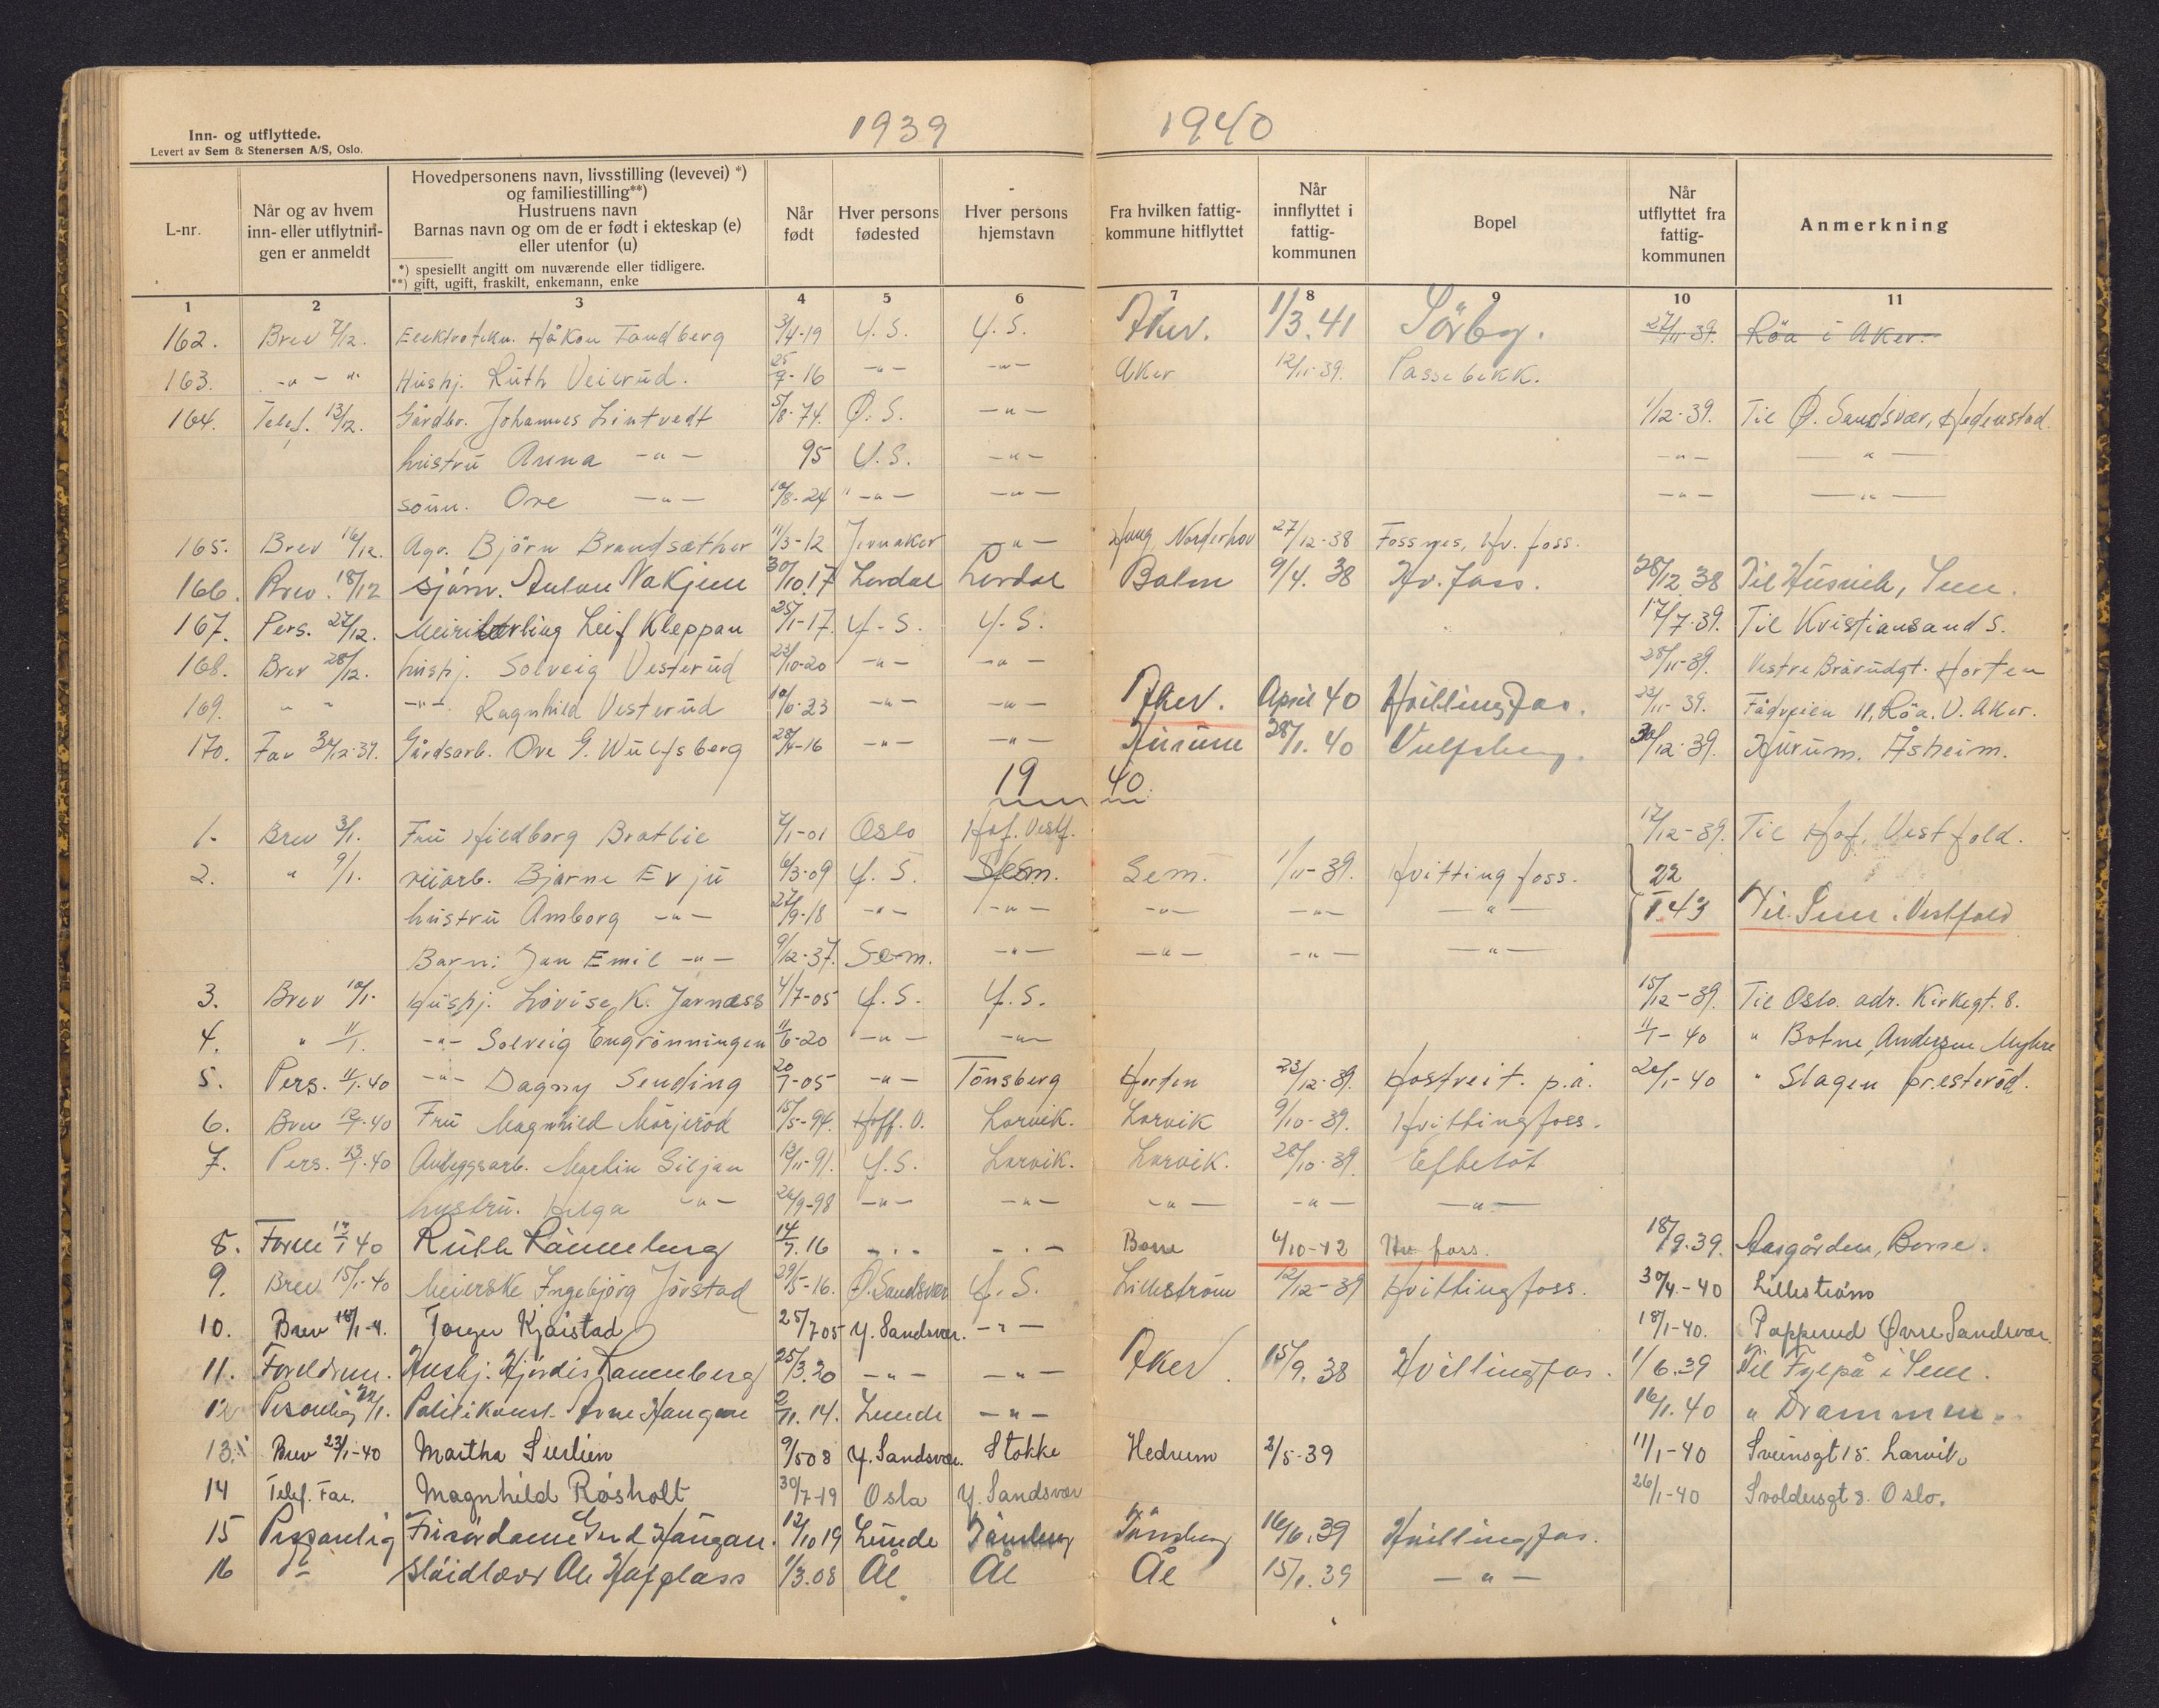 1939 1940
Inn- og utflyttede.
Levert av Sem & Stenersen A/S, Oslo.
L-nr. | Når og av hvem inn- eller utflytningen er anmeldt | Hovedpersonens navn, livsstilling (levevei) *) og familiestilling**) Hustruens navn Barnas navn og om de er født i ekteskap (e) eller utenfor (u) *) spesiellt angitt om nuværende eller tidligere. **) gift, ugift, fraskilt, enkemann, enke | Når født | Hver persons fødested | Hver persons hjemstavn | Fra hvilken fattigkommune hitflyttet | Når innflyttet i fattigkommunen | Bopel | Når utflyttet fra fattigkommunen | Anmerkning
1 2 3 4 5 6 7 8 9 10 11
162. Brev 7/12. Elektrotekn. Håkon Tandberg 3/4-19 Y.S. Y.S. Aker. 1/3.41 Sörby. 27/11-39. Röa i Aker.
163. -"- -"- Hushj. Ruth Veierud. 25/9-16 -"- -"- Aker 12/11-39. Passebekk.
164. Telef. 13/12. Gårdbr. Johannes Lintvedt 5/8-74. Ø.S. -"- 1/12-39. Til Ø. Sandsvær, Hedenstad.
hustru Anna -"- 95 Y.S. -"- -"- -"-
sönn. Ove -"- 10/8-24 -"- -"- -"- -"-
165. Brev 16/12. Agr. Björn Brandsæther 11/3-12 Jevnaker -"- Haug, Norderhov 27/12-38 Fossnes, Hv. foss.
166. Brev. 18/12 sjöm. Anton Nakjem 30/10.17 Lardal Lardal Balm 9/4. 38 Hv. foss. 28/12 38 Til Husvik, Sem.
167. Pers. 27/12. Meierilærling Leif Kleppan 25/1-17. Y.S. Y.S. 17/7-39. Til Kristiansand S.
168. Brev 28/12. hushj. Solveig Vesterud 23/10-20 -"- -"- 28/11-39. Vestre Brårudgt. Horten
169. " " -"- Ragnhild Vesterud 10/6-23 -"- -"- Aker. April 40 Hvittingfos. 23/11-39. Fådveien 11, Röa, V. Aker.
170. Far 30/12-39. Gårdsarb. Ove G. Wulfsberg 28/4-16 -"- -"- Hurum 28/1. 40 Vulfsberg. 30/12-39. Hurum. Åsheim.
19 40.
1. Brev 3/1. Fru Hildborg Bratlie 4/1-01 Oslo Hof. Vestf. 12/12-39. Til Hof, Vestfold.
2. " 9/1. veiarb. Bjarne Evju 6/3-09 Y.S. Sem. Sem. 1/11-39. Hvittingfoss. 22
hustru Amborg -"- 27/9-18 -"- -"- -"- -"- -"- 1.43 Til Sem i Vestfold
Barn: Jan Emil -"- 9/12-37. Sem. -"- -"- -"- -"-
3. Brev 10/1. Hushj. Lovise K. Jarnæss 4/7-05 Y.S. Y.S. 15/12-39. Til Oslo. adr. Kirkegt. 8.
4. " 11/1. -"- Solveig Engrönningen 11/6-20 -"- -"- 11/1-40 " Botne, Andersen Myhre
5. Pers. 11/1.40 -"- Dagny Sending 20/7-05 -"- Tönsberg Horten 23/12-39. Hostveit. p.å. 20/1-40 " Slagen Presteröd.
6. Brev 12/1.40 Fru Magnhild Mörjeröd 15/5-94. Hoff. V. Larvik. Larvik 9/10-39. Hvittingfoss.
7. Pers. 13/1.40 Anleggsarb. Martin Siljan 12/11-91. Y.S. Larvik. Larvik. 28/10-39. Efteløt
hustru. Helga -"- 26/9-98 -"- -"- -"- -"- -"-
8. 40 Ruth Rönneberg 14/7.16 -"- -"- Borre 6/10-42 Hv. foss. 18/9.39. Aasgården, Borre.
9. Brev 15/1-40 Meierske Ingebjörg Jörstad 29/5-16. Ø. Sandsvær Y.S. Lilleström 12/12-39 Hvittingfoss. 30/4-40 Lilleström
10. Brev 18/1-4. Torger Kjöistad 25/7 05 Y. Sandsvær. -"- 18/1-40. Papperud Øvre Sandsvær.
11. Foreldrene. Hushj. Hjördis Rönneberg 25/3.20 -"- -"- Aker. 15/9.38 Hvittingfos. 1/6.39 Til Fylpå i Sem.
12 Personlig 22/1. Politikonst. Arne Haugan 2/11.14. Lunde -"- 16/1.40 " Drammen.
13. Brev 23/1-40 Martha Surlien 9/5 08 Y. Sandsvær. Stokke Hedrum 2/5-39 11/1-40 Sveinsgt 15. Larvik.
14 Telef. Far. Magnhild Røsholt 30/7-19 Oslo Y. Sandsvær 26/1-40 Svoldersgt 8. Oslo.
15 Personlig Frisördame Gerd Haugan. 12/10 19 Lunde Tönsberg Tönsberg 16/6.39 Hvittingfos.
16 -"- Slöidlærer Ole Hofplass 1/3.08 Ål Ål Ål 15/1.39 -"-